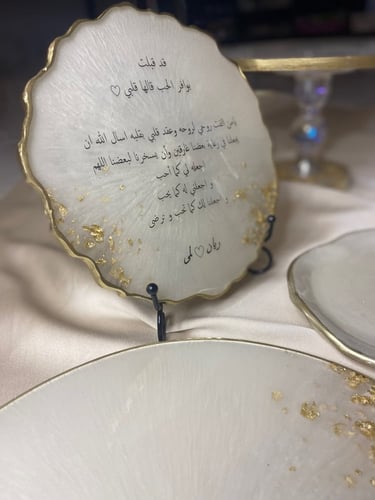 قد قبلت
بوافر الحب قالها قلبي ♡
يامن التفت روحي لروحه وعقد قلبي بقلبه اسال الله ان
يجعلنا في رعاية بعضنا غارقين وأن يسخرنا لبعضنا اللهم
اجعله لي كما أحب
و اجعلني له كما يحب
و اجعلنا لك كما تحب و ترضى
ريان ♡ لمى